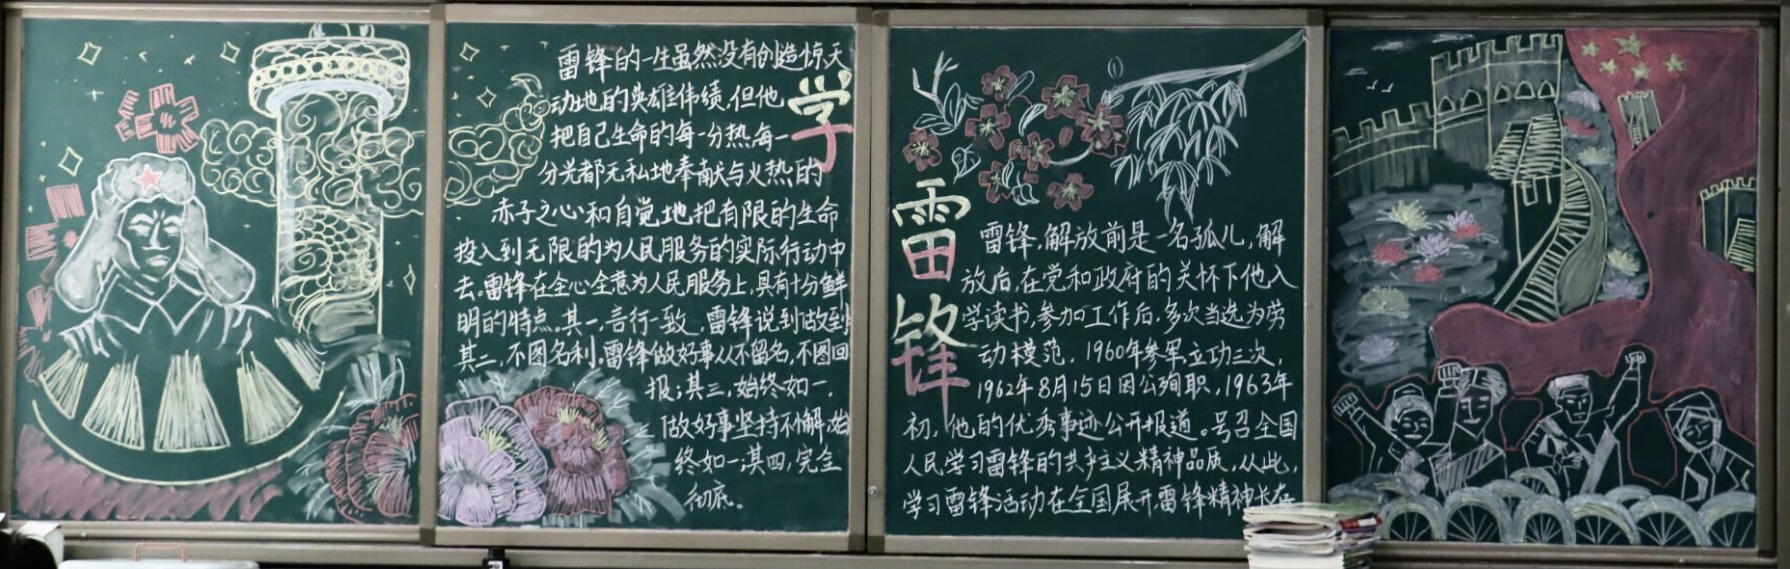 学
雷锋的一生虽然没有创造惊天
动地的英雄伟绩,但他
把自己生命的每一分热每一
分光都无私地奉献与火热的
赤子之心和自觉地把有限的生命
投入到无限的为人民服务的实际行动中
去。雷锋在全心全意为人民服务上,具有十分鲜
明的特点。其一,言行一致,雷锋说到做到
其二,不图名利。雷锋做好事从不留名,不图回
报;其三,始终如一,
做好事坚持不懈,始
终如一;其四,完全
彻底。
雷
锋
雷锋,解放前是一名孤儿,解
放后,在党和政府的关怀下他入
学读书,参加工作后,多次当选为劳
动模范,1960年参军,立功三次,
1962年8月15日因公殉职,1963年
初,他的优秀事迹公开报道。号召全国
人民学习雷锋的共产主义精神品质,从此,
学习雷锋活动在全国展开,雷锋精神长存